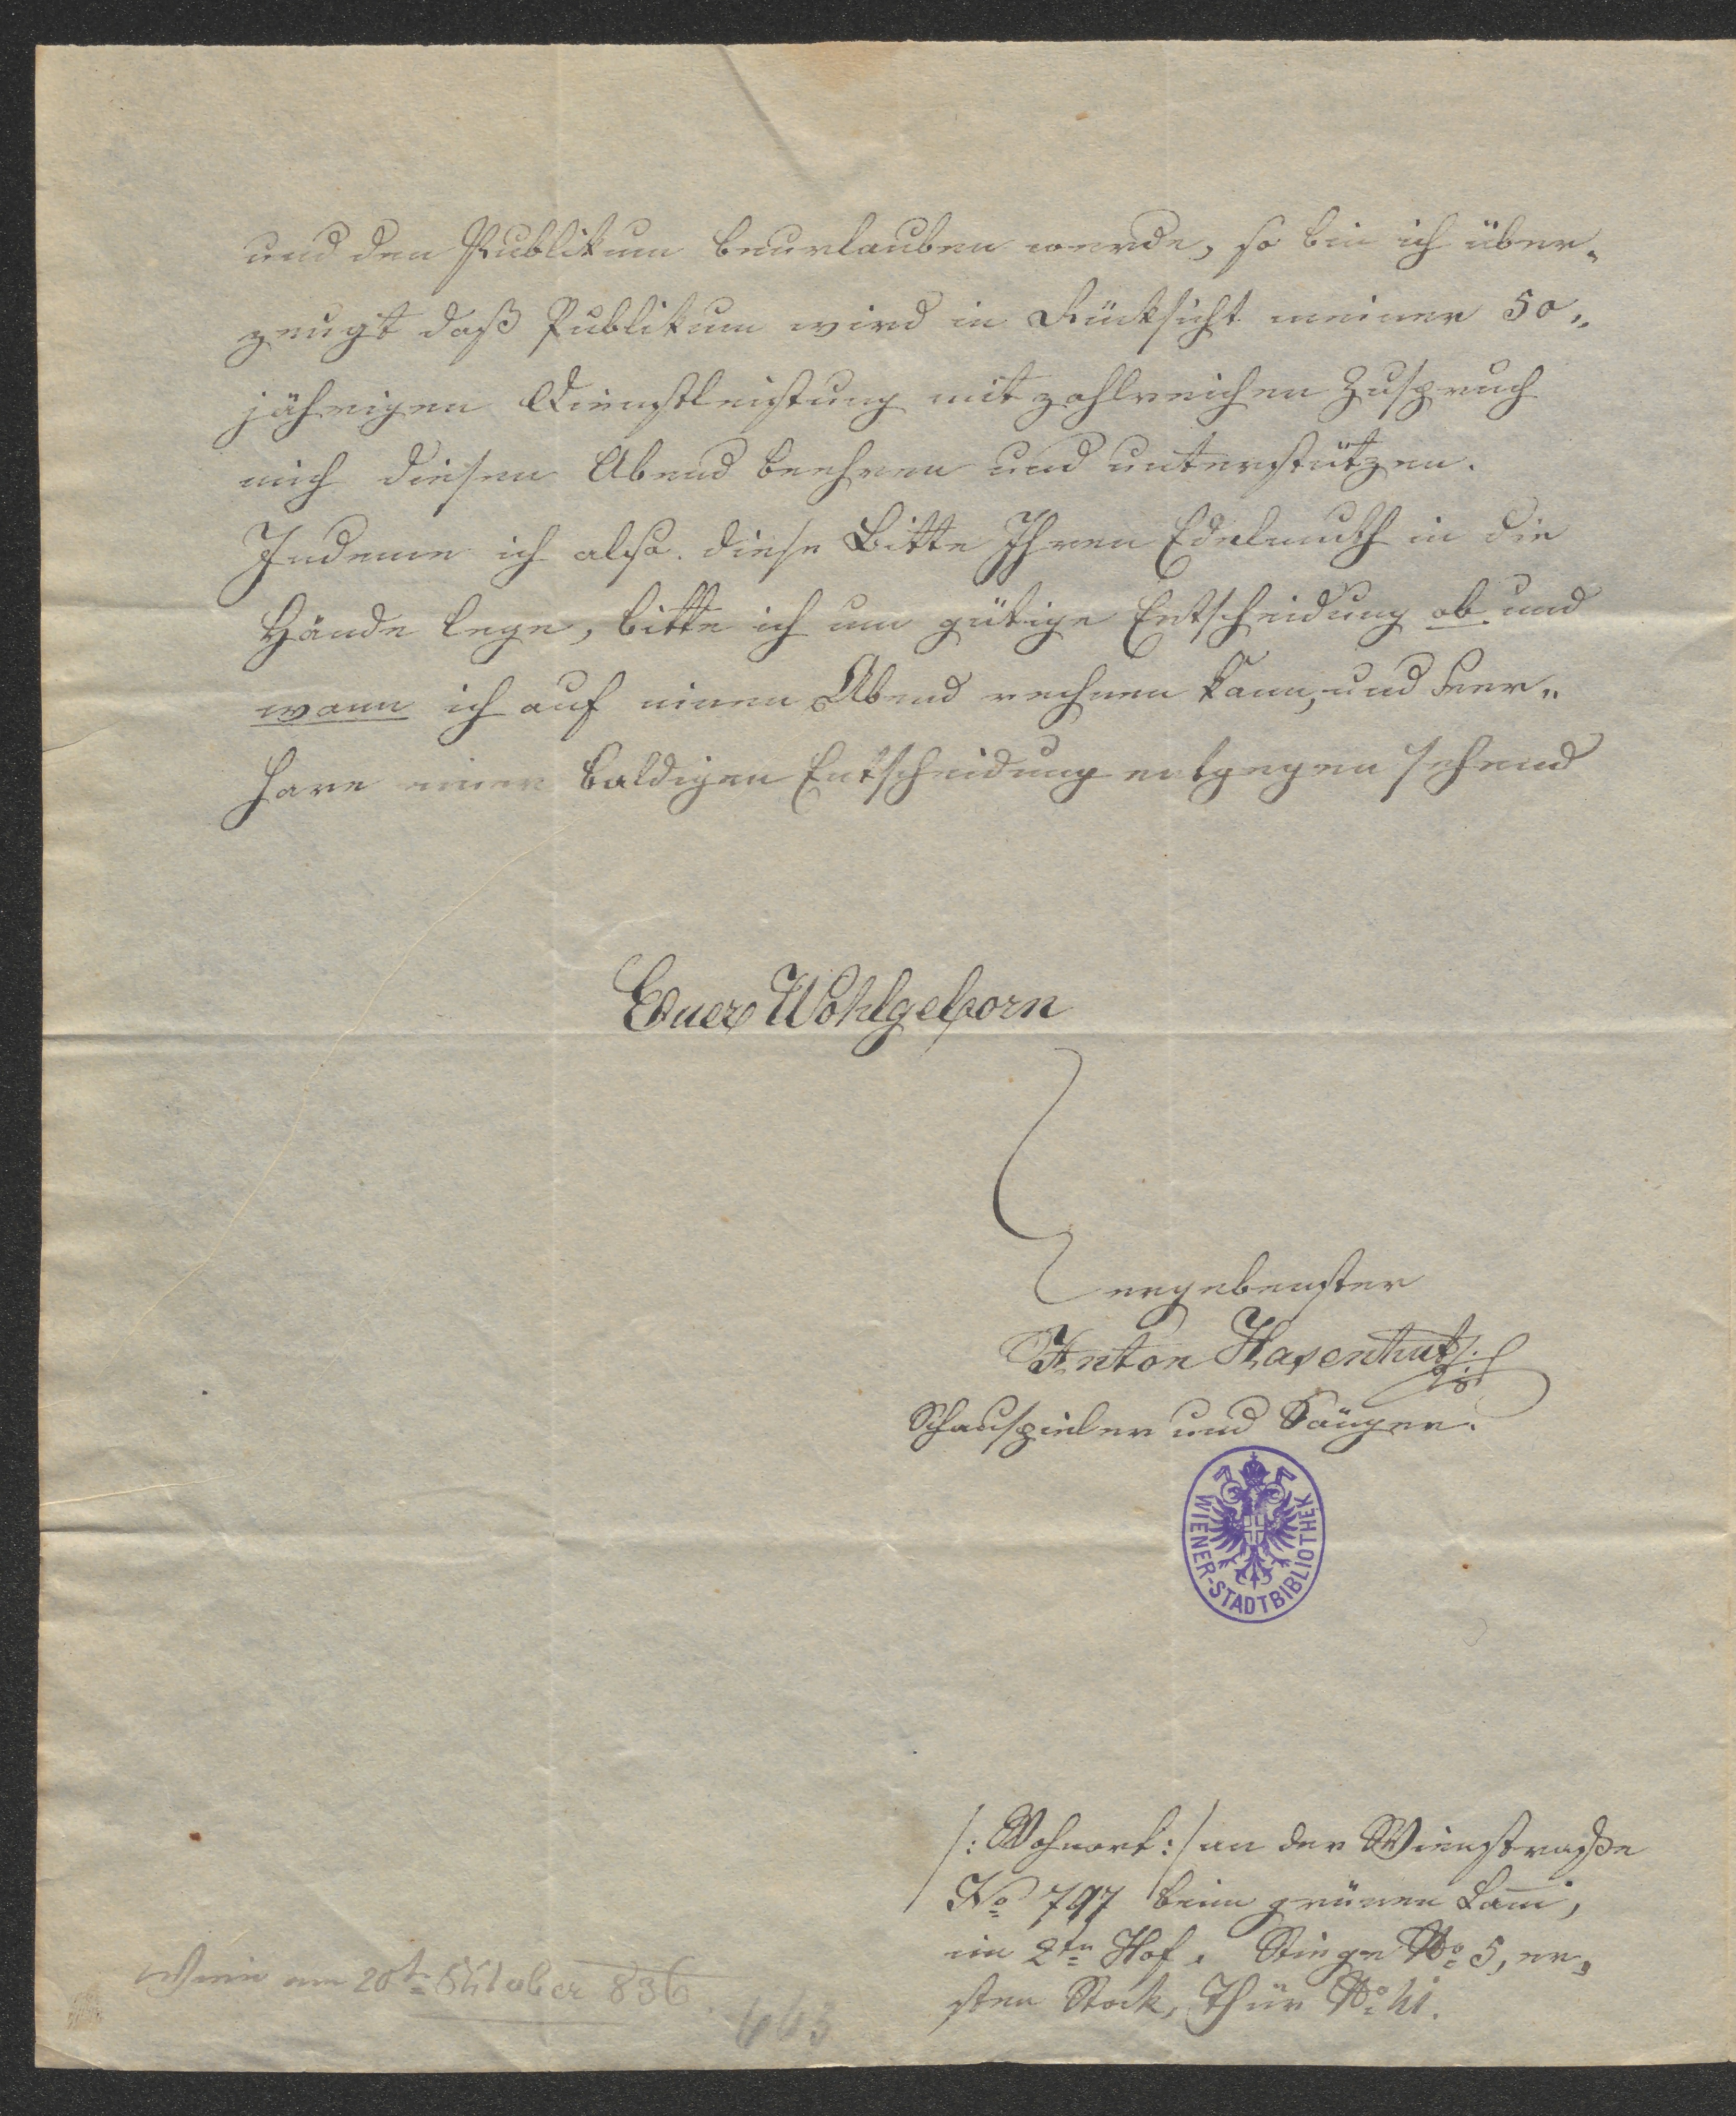 und den Publikum beurlauben werde, so bin ich über-
zeugt daß Publikum wird in Rücksicht meiner 50„
jährigen Dienstleistung mit zahlreichen Zuspruch
mich diesen Abend beehren und unterstützen.
Indeme ich also diese Bitte Ihren Edelmuth in die
Hände lege, bitte ich um gütige Entscheidung ob und
wann ich auf einen Abend rechnen kann, und
harre einer baldigen Entscheidung entgegen sehend
Euer Wohlgeborn
ergebenster
Anton Hasenhut
Schauspieler und Sänger.
WIENER-STADTBIBLIOTHEK
/: Wohnort :/ an der Wienstraße
No 797 beim grünen Lam̄,
im 2tn Hof. Stiege No 5, er„
sten Stock, Thür No 41.
Wien am 20t Oktober 836.
663